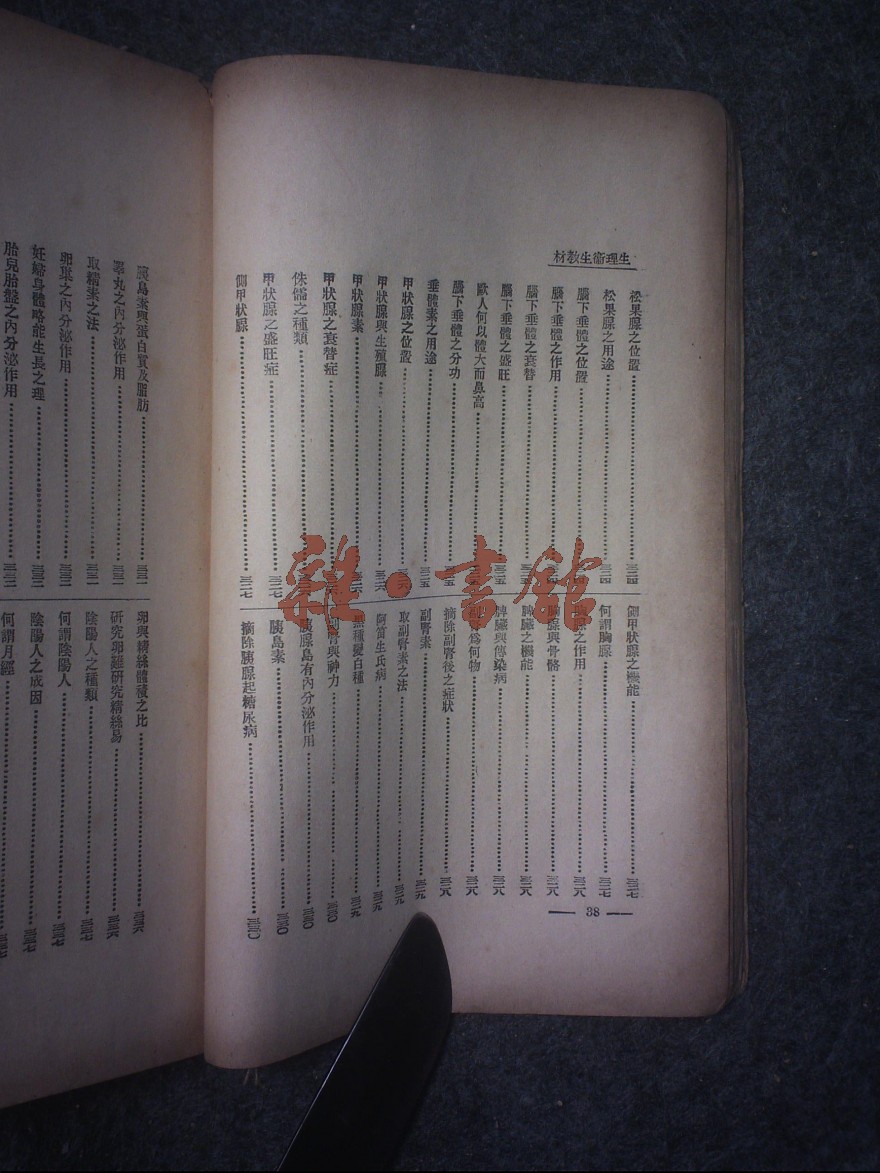 生理衞生教材
松果腺之位置……三二四
松果腺之用途……三二四
腦下垂體之位置
腦下垂體之作用
腦下垂體之衰替
腦下垂體之盛旺
歐人何以體大而鼻高
腦下垂體之分功
垂體素之用途……三二五
甲狀腺之位置
甲狀腺與生殖腺……三二六
甲狀腺素
甲狀腺之衰替症
侏儒之種類
甲狀腺之盛旺症……三二七
側甲狀腺……三二七
側甲狀腺之機能……三二七
何謂胸腺……三二七
胸腺之作用……三二八
胸腺與骨骼……三二八
脾臟之機能……三二八
脾臟與傳染病……三二八
為何物……三二八
摘除副腎後之症狀……三二八
副腎素……三二九
取副腎素之法……三二九
阿笛生氏病……三二九
黑種變白種……三二九
副腎與神力……三三〇
胰腺島有內分泌作用……三三〇
胰島素……三三〇
摘除胰腺起糖尿病……三三〇
38
雜·書館
胰島素與蛋白質及脂肪……三三一
睪丸之內分泌作用……三三一
取精素之法……三三一
卵巢之內分泌作用……三三二
妊婦身體略能生長之理……三三二
胎兒胎盤之內分泌作用……三三二
卵與精絲體積之比……三三六
研究卵難研究精絲易……三三六
陰陽人之種類……三三七
何謂陰陽人……三三七
陰陽人之成因……三三七
何謂月經